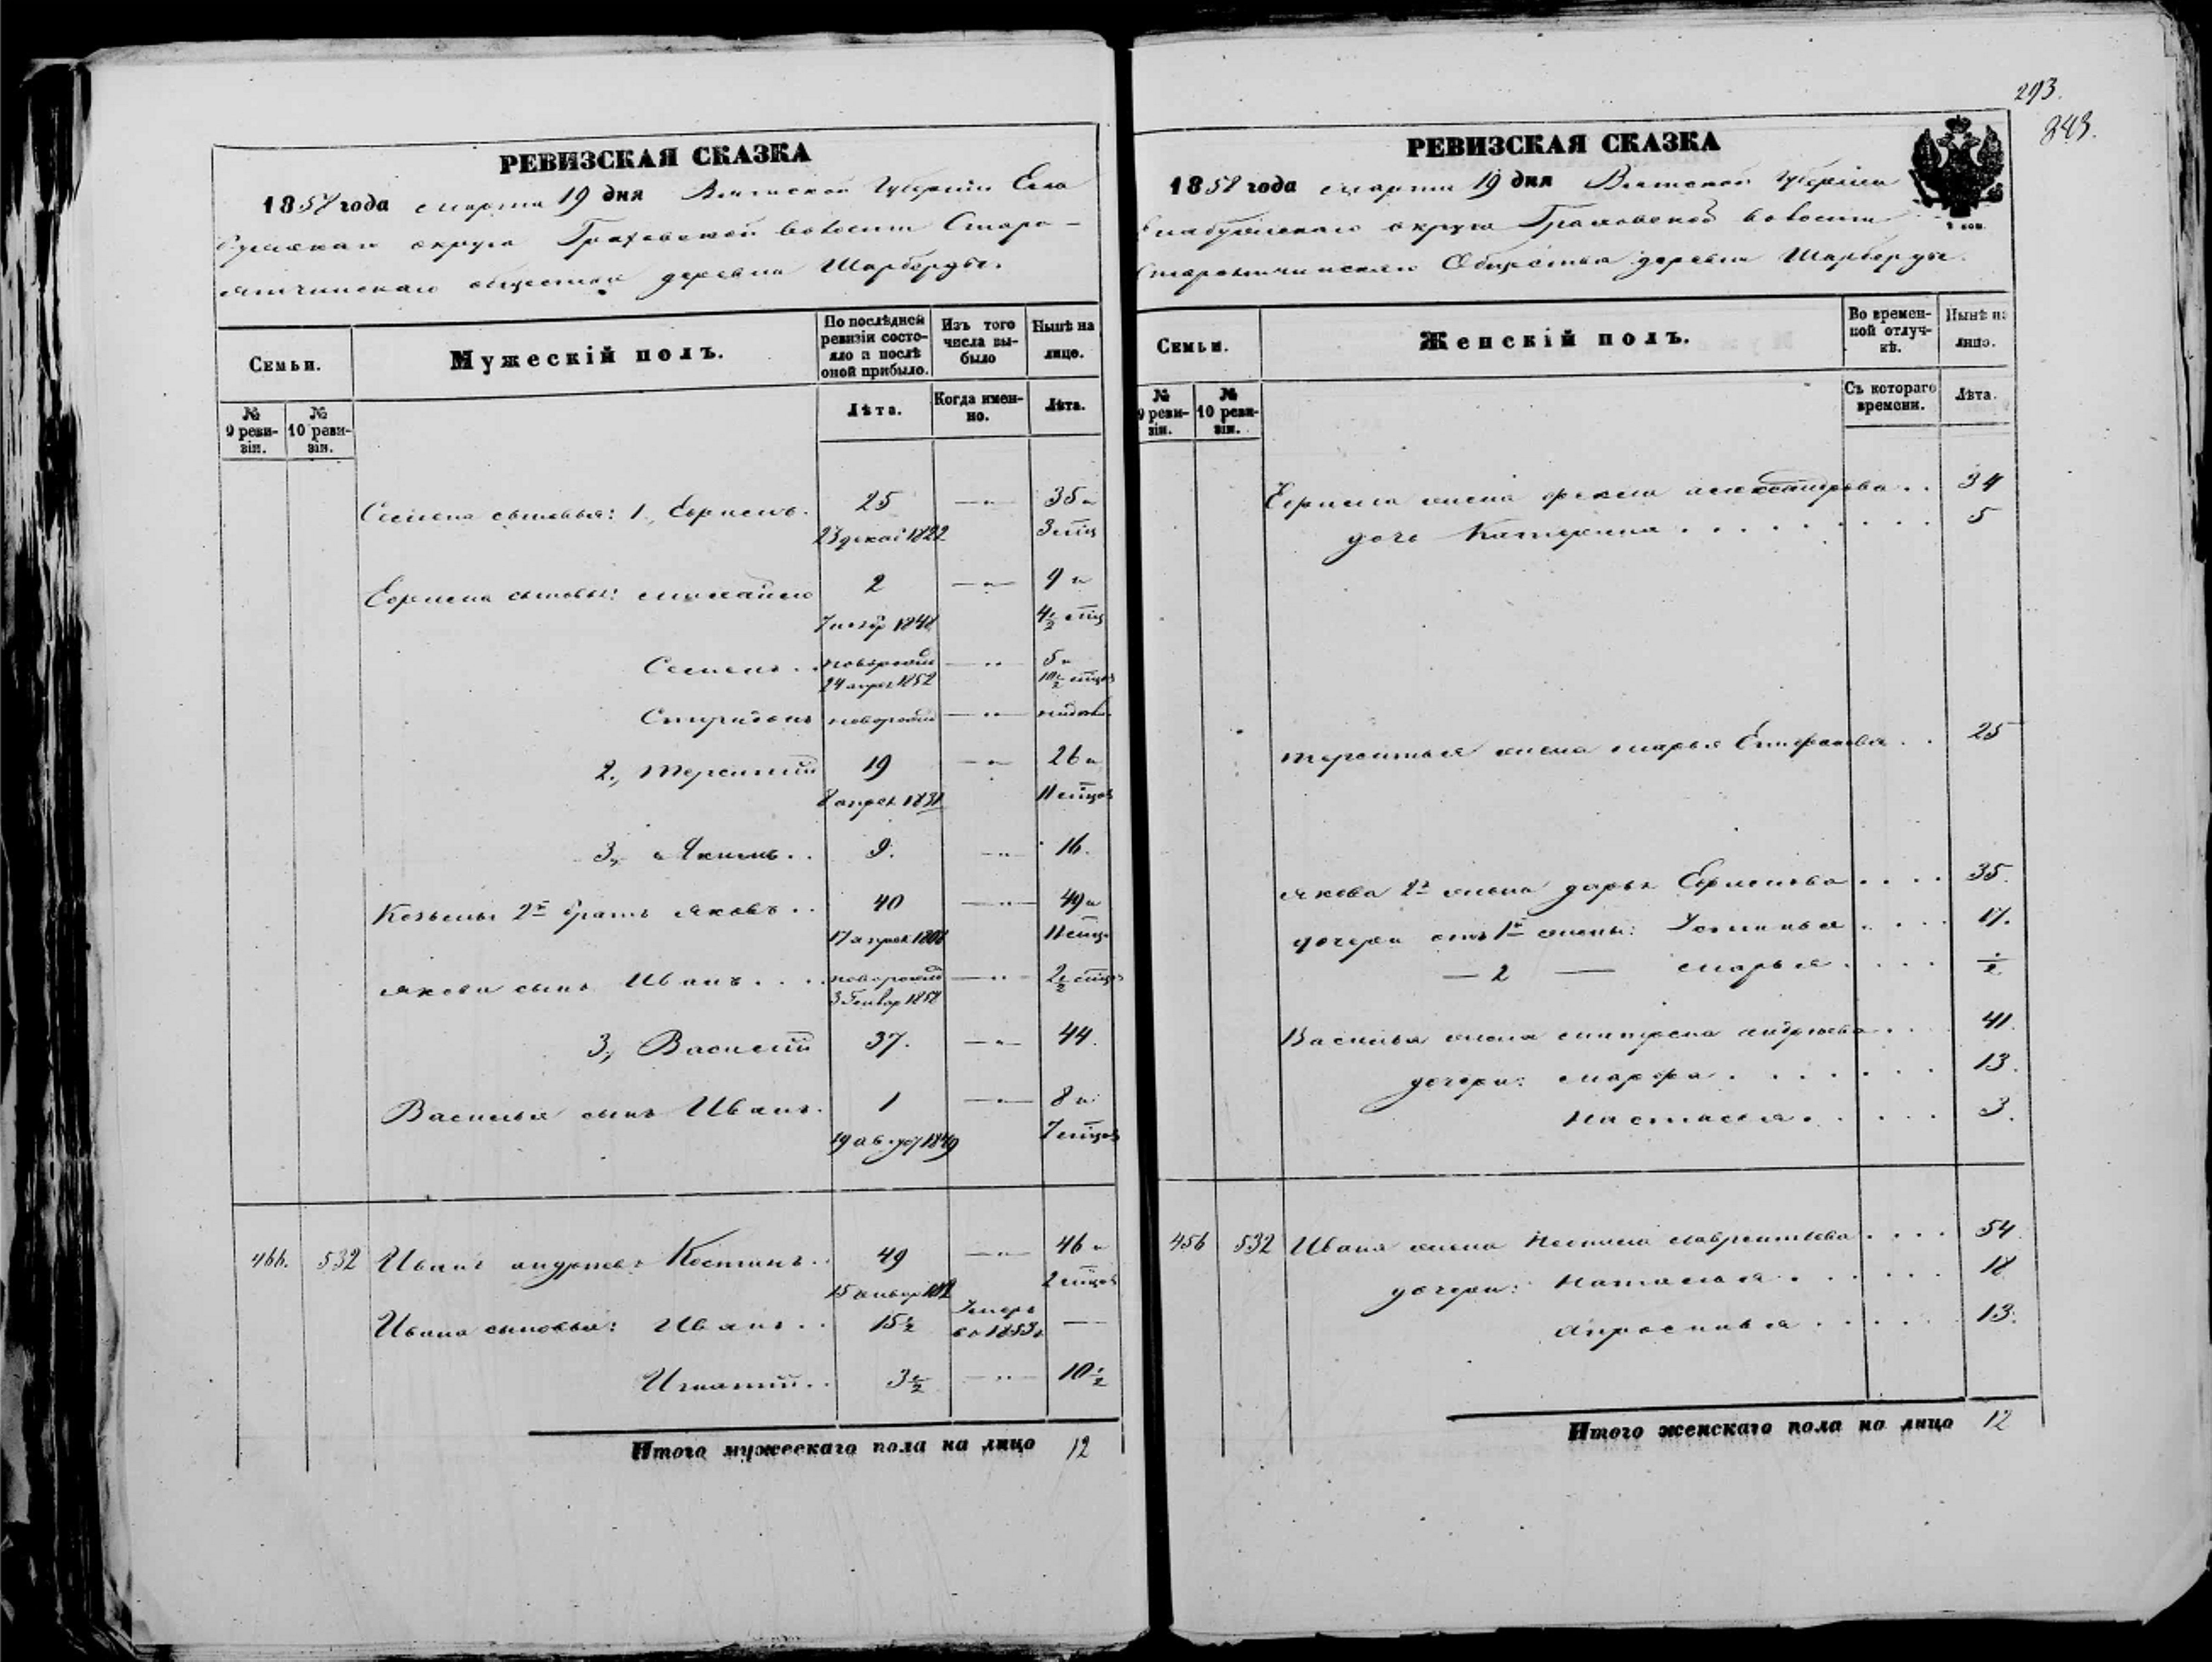 293.
243.
РЕВИЗСКАЯ СКАЗКА
1858 года марта 19 дня Вятской Губерніи Ела
бужскаго округа Граховской волости Старо-
ятчинскаго общества деревни Шарберды.
Семьи.
Мужескій полъ.
По послѣдней ревизіи состояло и послѣ оной прибыло.
Изъ того числа выбыло
Нынѣ на лицо.
№ 9 ревизіи.
№ 10 ревизіи.
Лѣта.
Когда именно.
Лѣта.
Семена сыновья: 1., Ефремъ. 25 —„— 35 и
23 декаб 1822 3 мѣц
Ефрема сыновья: Михайло 2 —„— 9 и
7 1848 4½ мѣц
Семенъ . . новорожд —„— 5 и
24 апрел 1852 10½ мѣцов
Спиридонъ новорожд —„—
2., Терентий 19 —„— 26 и
8 апрел 1831 11 мѣцов
3., Якимъ . . 9. —„— 16.
Козьмы 2й братъ Яковъ . . 40 —„— 49 и
17 апрел 1808 11 мѣцо
Якова сынъ Иванъ . . . . новорожд —„— 2½ мѣцов
3 Генвар 1858
3., Василий 37. —„— 44.
Василья сынъ Иванъ. 1 —„— 8 и
19 август 1849 7 мѣцов
466. 532 Иванъ Андреевъ Костинъ . . 49 —„— 46 и
15 2 мѣцов
Ивана сыновья: Иванъ . . 15½ Умеръ въ 1853 г —
Игнатий . . 3½ —„— 10½
Итого мужескаго пола на лицо 12
РЕВИЗСКАЯ СКАЗКА
1858 года марта 19 дня Вятской Губерніи
Елабужскаго округа Граховской волости
Староятчинскаго Общества деревни Шарберды.
Семьи.
Женскій полъ.
Во временной отлучкѣ.
Нынѣ на лицо.
№ 9 ревизіи.
№ 10 ревизіи.
Съ котораго времени.
Лѣта.
Ефрема жена Фекла Александрова . . 34
дочь Катерина . . . . . . . . 5
Терентья жена Марья Епифанова . . 25
Якова 2я жена Дарья Ефремова . . . . 35.
дочери отъ 1й жены: Устинья . . . . 17.
— 2 — Марья . . . . ½
Василья жена Матрена Андреева . . . 41.
дочери: Марфа . . . . . . . 13.
Настасья . . . . . 3.
456 532 Ивана жена Лаврентьева . . . . 54.
дочери: Наталья . . . . . . 18
Апросинья . . . . . 13.
Итого женскаго пола на лицо 12